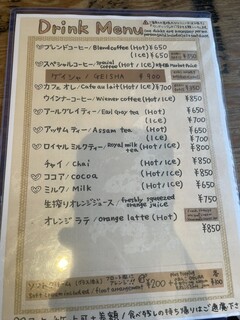 Drink Menu
ブレンドコーヒー/Blend coffee (Hot) ¥650
(Ice) ¥650
スペシャルコーヒー/special coffee (Hot/Ice) 時価 Market Price
ゲイシャ/GEISHA ¥900
カフェ オレ/Cafe au lait (Hot/Ice) ¥700
ウインナーコーヒー/Winner coffee (Hot/Ice) ¥850
アールグレイティー/Earl gray tea (Hot) ¥650
(Ice) ¥700
アッサムティー/Assam tea (Hot) ¥650
(Ice) ¥700
ロイヤルミルクティー/Royal milk tea (Hot) ¥700
(Ice) ¥750
チャイ/Chai ¥850
ココア/cocoa (Hot/Ice) ¥750
ミルク/Milk (Hot/Ice) ¥650
生搾りオレンジジュース/freshly squeezed orange juice ¥750
オレンジ ラテ/orange latte (Hot)
¥850
ソフトクリーム
¥200
¥100